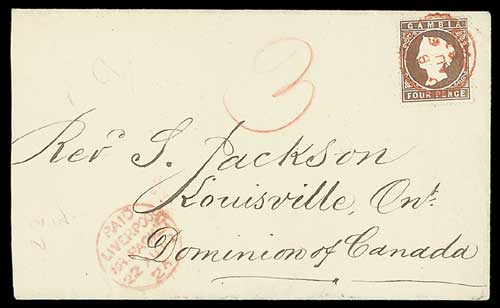 GAMBIA
FOUR PENCE
3
Revd S. Jackson
Louisville, Ont.
Dominion of Canada
PAID
LIVERPOOL